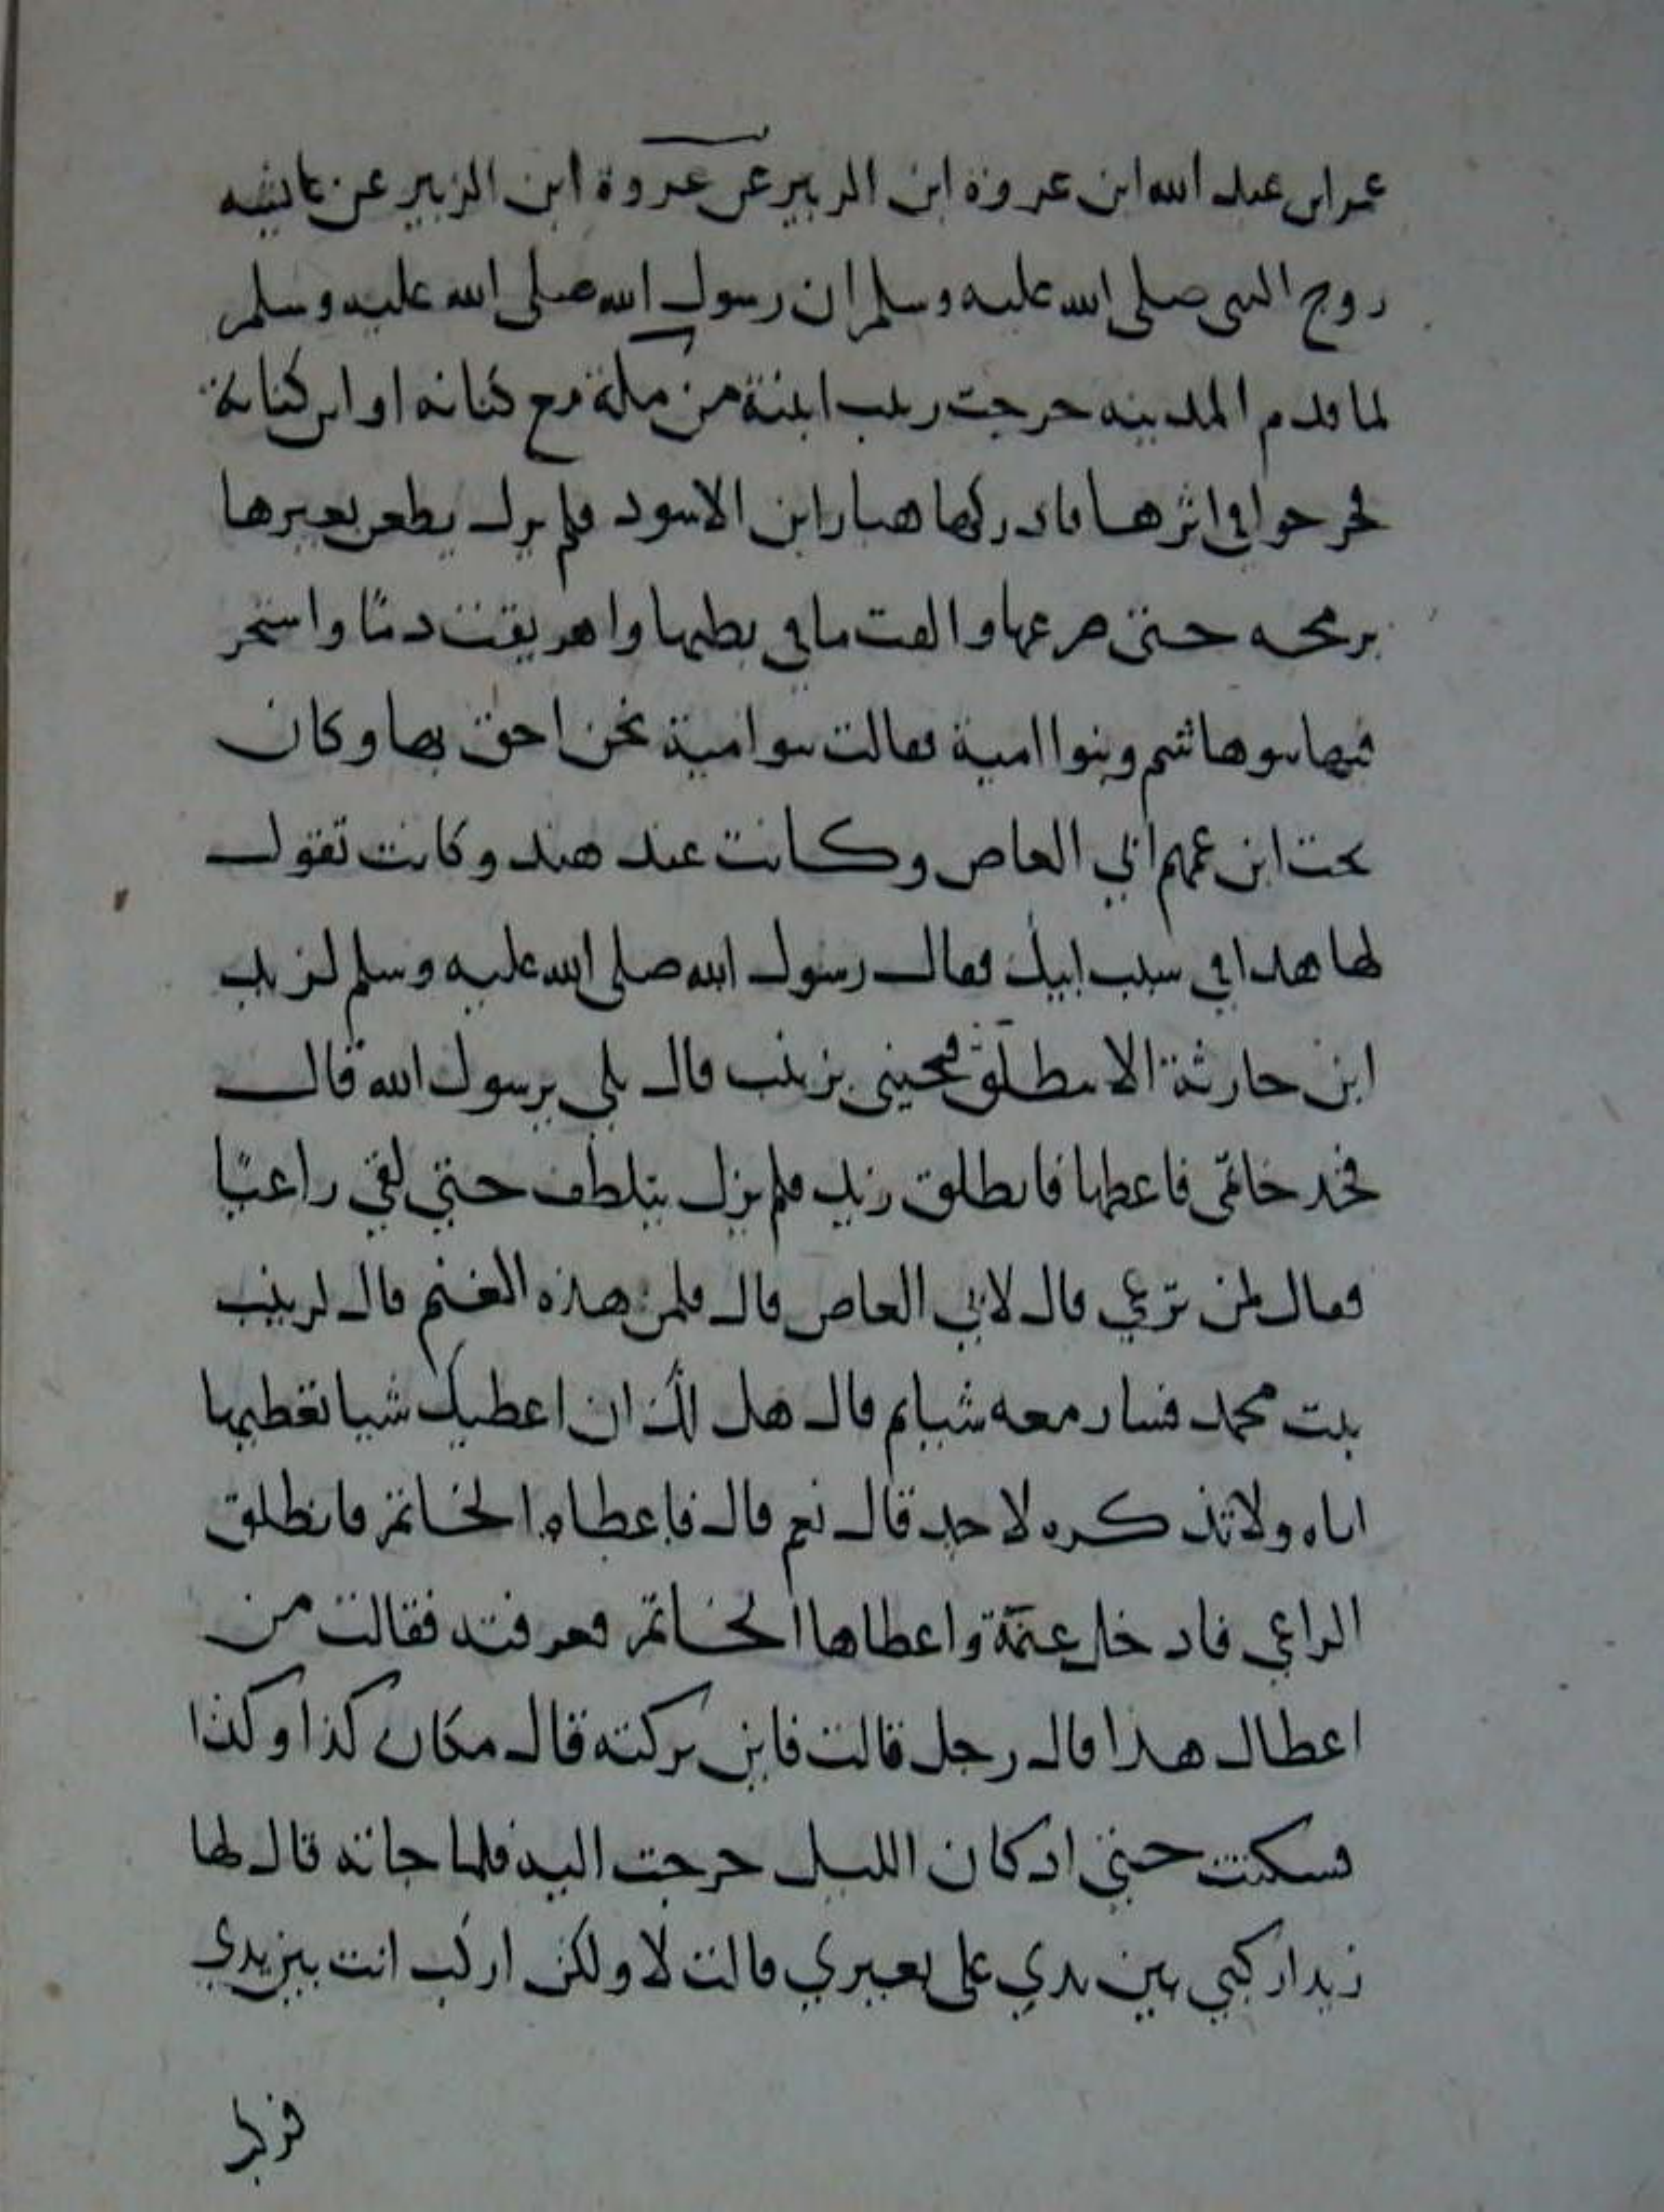 عمر ابن عبد الله ابن عروة ابن الزبير عن عروة ابن الزبير عن عايشه
زوج النبي صلى الله عليه وسلم ان رسول الله صلى الله عليه وسلم
لما قدم المدينه خرجت زينب ابنته من مكة مع كنانه او ابن كنانة
فخرجوا في اثرها فادركها هبار ابن الاسود فلم يزل يطعن بعيرها
برمحه حتى صرعها والقت ما في بطنها واهريقت دمًا واشتجر
فيها بنو هاشم وبنوا امية فقالت بنوا امية نحن احق بها وكان
تحت ابن عمهم ابي العاص وكانت عند هند وكانت تقول
لها هذا في سبب ابيك فقال رسول الله صلى الله عليه وسلم لزيد
ابن حارثة الا تنطلق فتجيني بزينب قال بلى يرسول الله قال
فخد خاتمى فاعطها فانطلق زيد فلم يزل يتلطف حتي لقي راعيًا
فقال لمن ترعي قال لابي العاص قال فلمن هذه الغنم قال لزينب
بنت محمد فسار معه شيا ثم قال هل لك ان اعطيك شيا تعطيها
اياه ولا تذكره لاحد قال نعم قال فاعطاه الخاتم فانطلق
الراعي فادخل غنمة واعطاها الخاتم فعرفته فقالت من
اعطاك هذا قال رجل قالت فاين تركته قال مكان كذا وكذا
فسكتت حتي اذ كان الليل خرجت اليه فلما جاته قال لها
زيد اركبي بين يدي على بعيري قالت لا ولكن اركب انت بين يدي
فركب